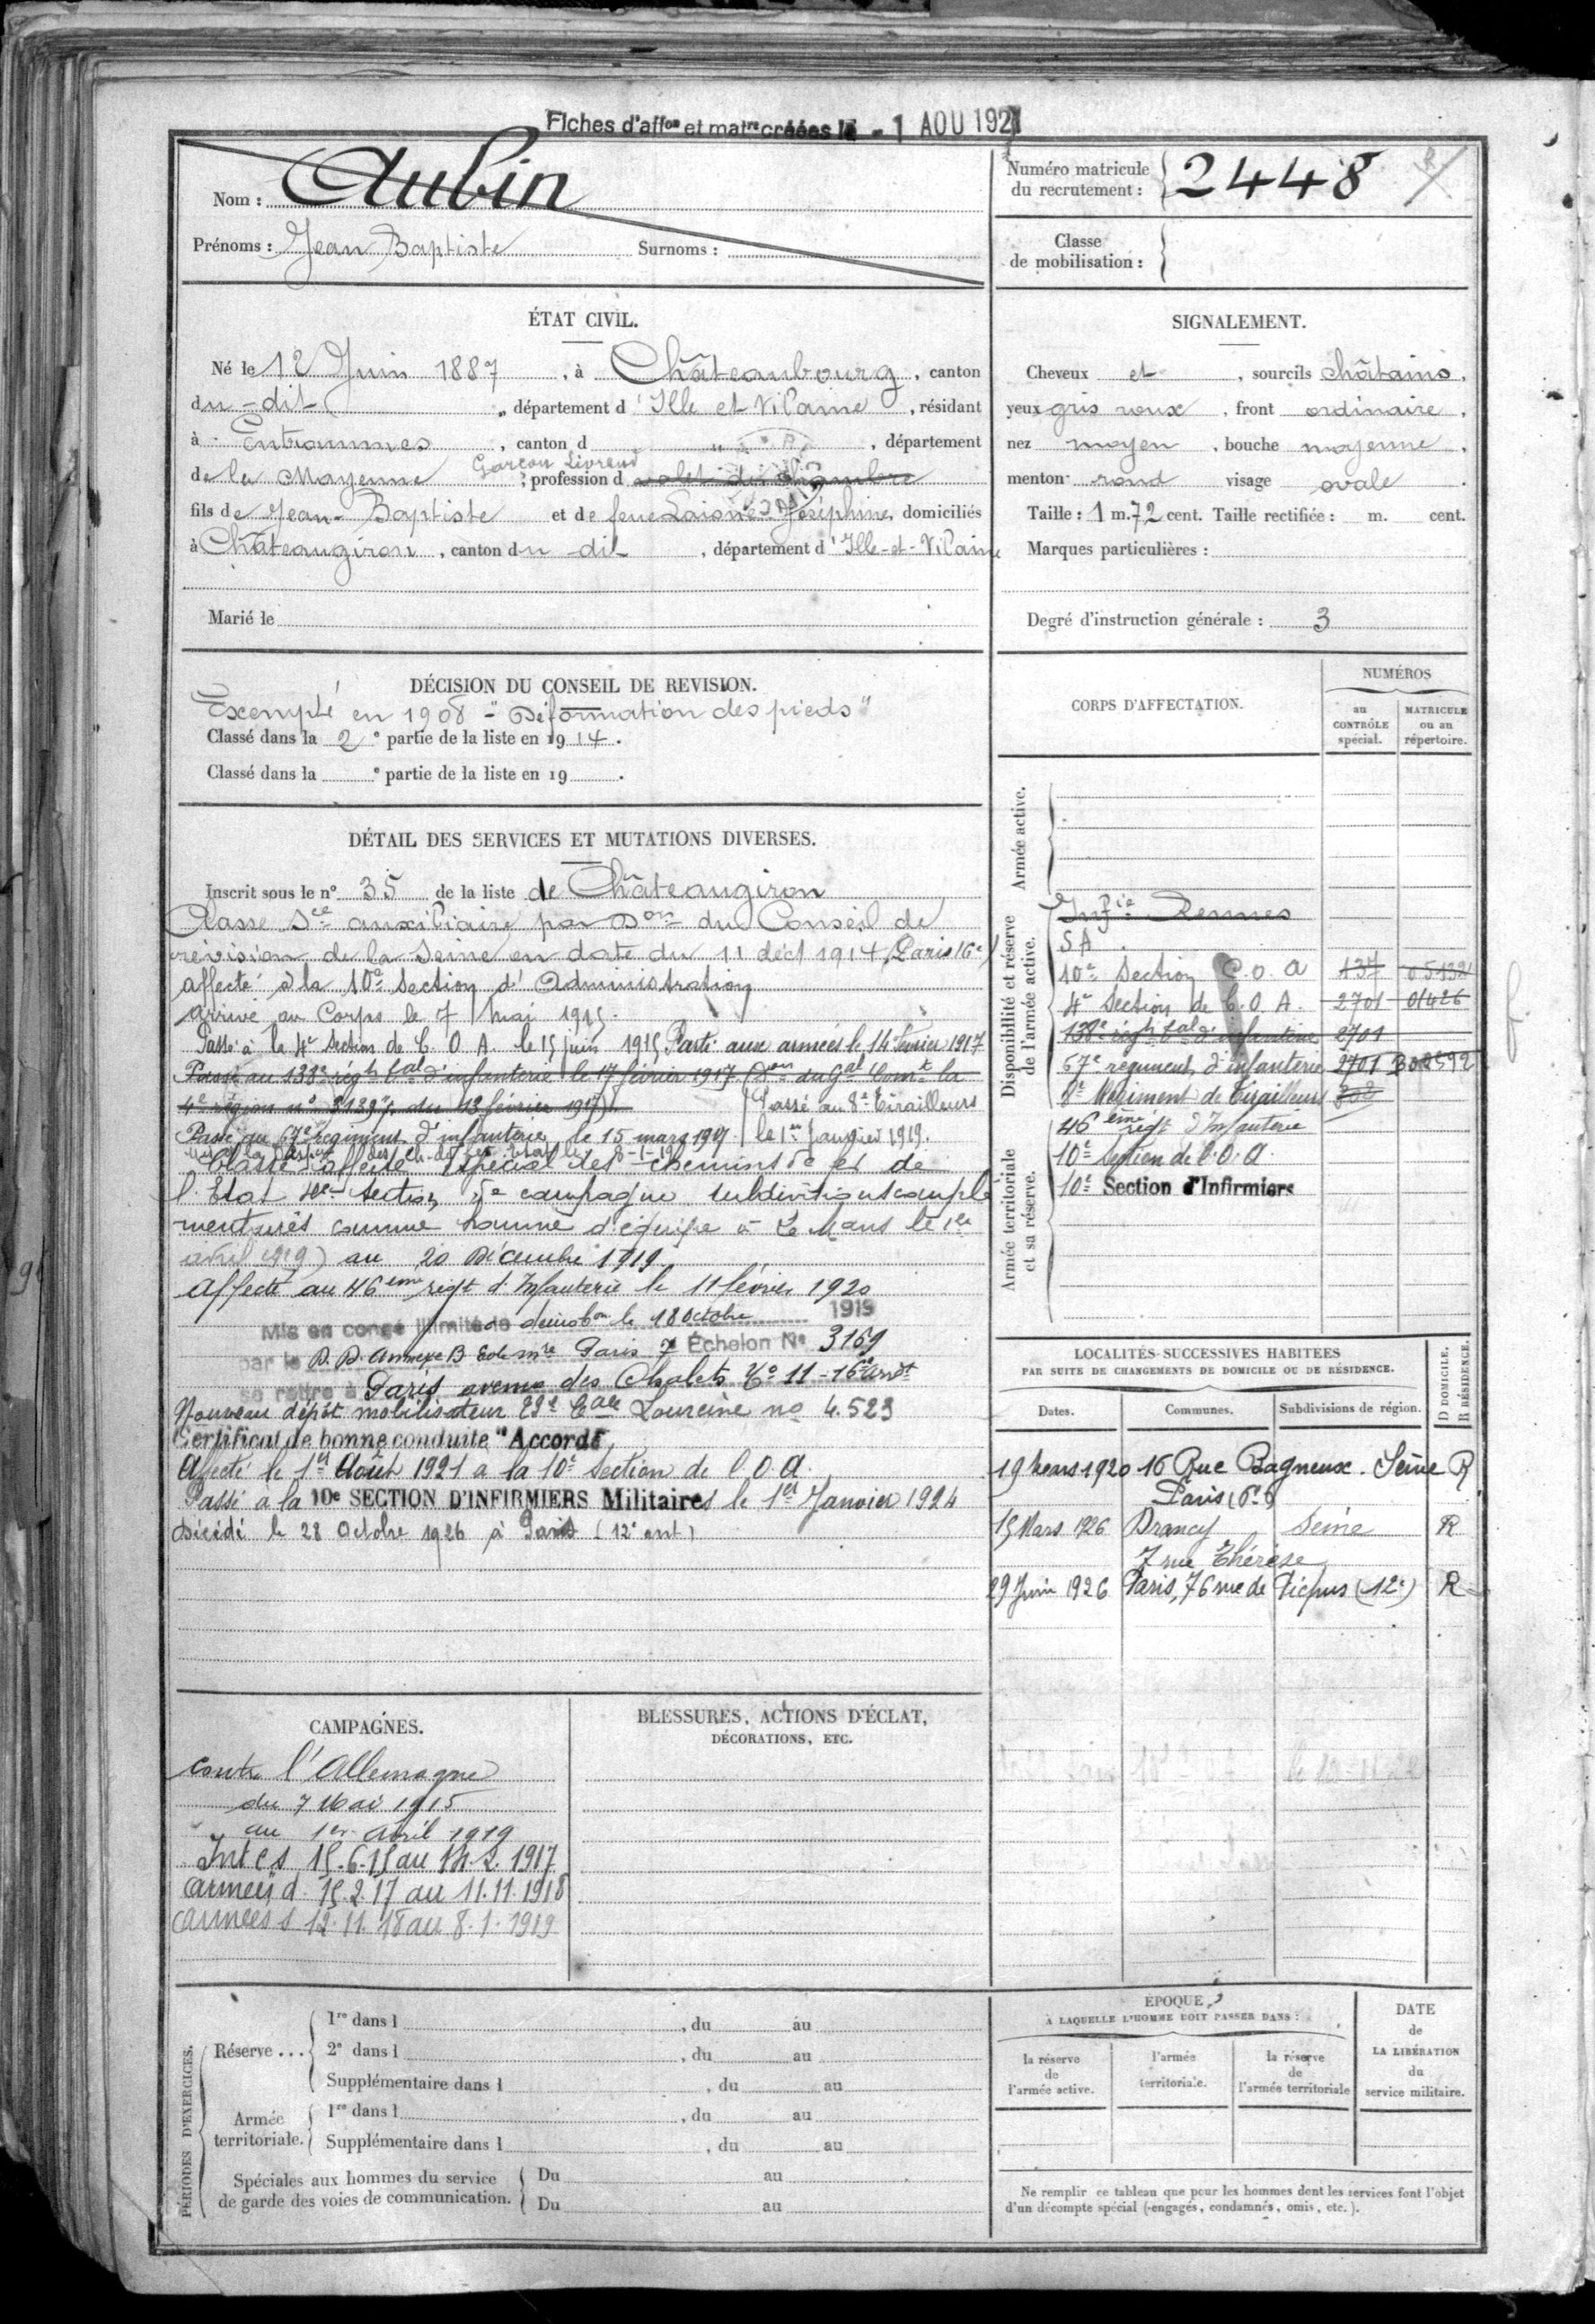 Fiches d'affon et matre créées le - 1 AOU 1921
Nom : Aubin
Prénoms : Jean Baptiste Surnoms :
Numéro matricule du recrutement : 2448
Classe de mobilisation :
ÉTAT CIVIL.
Né le 12 Juin 1887, à Châteaubourg, canton
du - dit, département d'Ille et Vilaine, résidant
à Entrammes, canton d, département
de la Mayenne, profession d valet de chambre
Garçon Livreur
fils de Jean-Baptiste et de feue Laisné Joséphine, domiciliés
à Châteaugiron, canton du dit, département d'Ille-et-Vilaine
Marié le
SIGNALEMENT.
Cheveux et, sourcils châtains,
yeux gris roux, front ordinaire,
nez moyen, bouche moyenne,
menton rond visage ovale.
Taille : 1 m. 72 cent. Taille rectifiée : m. cent.
Marques particulières :
Degré d'instruction générale : 3
DÉCISION DU CONSEIL DE REVISION.
Exempté en 1908 - "Déformation des pieds"
Classé dans la 2e partie de la liste en 1914.
Classé dans la e partie de la liste en 19 .
DÉTAIL DES SERVICES ET MUTATIONS DIVERSES.
Inscrit sous le n° 35 de la liste de Châteaugiron
Classé Sce auxiliaire par Don du Conseil de
révision de la Seine en date du 11 déct 1914 (Paris 16e)
affecté à la 10e Section d'Administration
arrivé au Corps le 7 Mai 1915.
Passé à la 4e Section de C. O. A. le 15 juin 1915 Parti aux armées le 14 février 1917
Passé au 138e régt tal d'infanterie le 17 février 1917. (Don du Gal Comt la
4e région n° 3139 du 13 février 1917)
Passé au 8e Tirailleurs
le 1er Janvier 1919.
Passé au 67e régiment d'infanterie le 15 mars 1917
Classé affecté spécial des chemins de fer de
l'Etat 10e Section, 5e campagne subdivisions complé
mentaires comme homme d'équipe à Le Mans le 1er
avril 1919) au 20 Décembre 1919
Affecté au 46ème régt d'Infanterie le 11 février 1920
Mis en congé illimité de démobon le 18 Octobre 1919
par le D. D. annexe B Ecole Mre Paris 7 Échelon N° 3169
se retire à Paris avenue des Chalets N° 11 - 16e arrdt
Nouveau dépôt mobilisateur 23e Cale Lourcine no 4.523
Certificat de bonne conduite "Accordé"
Affecté le 1er Août 1921 à la 10e Section de C.O.A.
Passé à la 10e SECTION D'INFIRMIERS Militaires le 1er Janvier 1924
Décédé le 28 Octobre 1926 à Paris (12e arrt)
CORPS D'AFFECTATION.
NUMÉROS
au CONTRÔLE spécial.
MATRICULE ou au répertoire.
Armée active.
Disponibilité et réserve de l'armée active.
Infie Rennes
SA
10e Section C.O.A 137 05132
4e Section de C.O.A. 2701 01426
138e régt tal d'infanterie 2701
67e régiment d'infanterie 2701
8e Régiment de Tirailleurs
46ème régt d'Infanterie
Armée territoriale et sa réserve.
10e Section de C.O.A.
10e Section d'Infirmiers
LOCALITÉS SUCCESSIVES HABITÉES
PAR SUITE DE CHANGEMENTS DE DOMICILE OU DE RÉSIDENCE.
Dates. Communes. Subdivisions de région. D DOMICILE. R RÉSIDENCE.
19 Mars 1920 16 Rue Bagneux. Seine R
Paris (6e)
15 Mars 1926 Drancy Seine R
7 rue Thérèse
29 Juin 1926 Paris, 76 rue de Picpus (12e) R
CAMPAGNES.
contre l'Allemagne
du 7 Mai 1915
au 1er Avril 1919
Int cs 15.6.15 au 14.2.1917
armées d. 15.2.17 au 11.11.1918
armées s 12.11.18 au 8.1.1919
BLESSURES, ACTIONS D'ÉCLAT,
DÉCORATIONS, ETC.
PÉRIODES D'EXERCICES.
Réserve ...
1re dans l , du au
2e dans l , du au
Supplémentaire dans l , du au
Armée territoriale.
1re dans l , du au
Supplémentaire dans l , du au
Spéciales aux hommes du service
de garde des voies de communication.
Du au
Du au
ÉPOQUE
À LAQUELLE L'HOMME DOIT PASSER DANS :
la réserve de l'armée active.
l'armée territoriale.
la réserve de l'armée territoriale
DATE de LA LIBÉRATION du service militaire.
Ne remplir ce tableau que pour les hommes dont les services font l'objet
d'un décompte spécial (engagés, condamnés, omis, etc.).